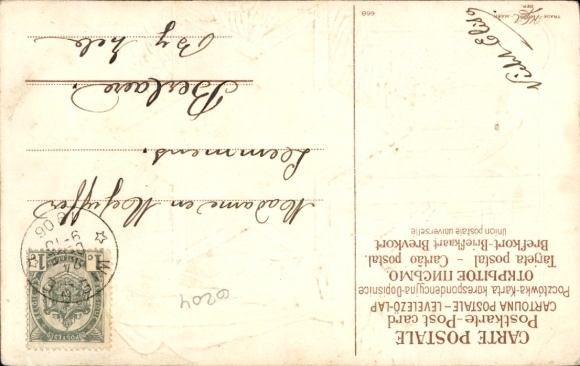 CARTE POSTALE
Postkarte-Post card
CARTOLINA POSTALE - LEVELEZŐ-LAP
Pocztówka-Karta korespondencyjna-Dopisnice
ОТКРЫТОЕ ПИСЬМО
Tarjeta postal - Cartão postal.
Brefkort-Briefkaart Brevkort
Union postale universelle
Madame en
Leemmens.
Berlaere.
By Zele
668
TRADE MARK
DEP.
0204
1c 1c
06